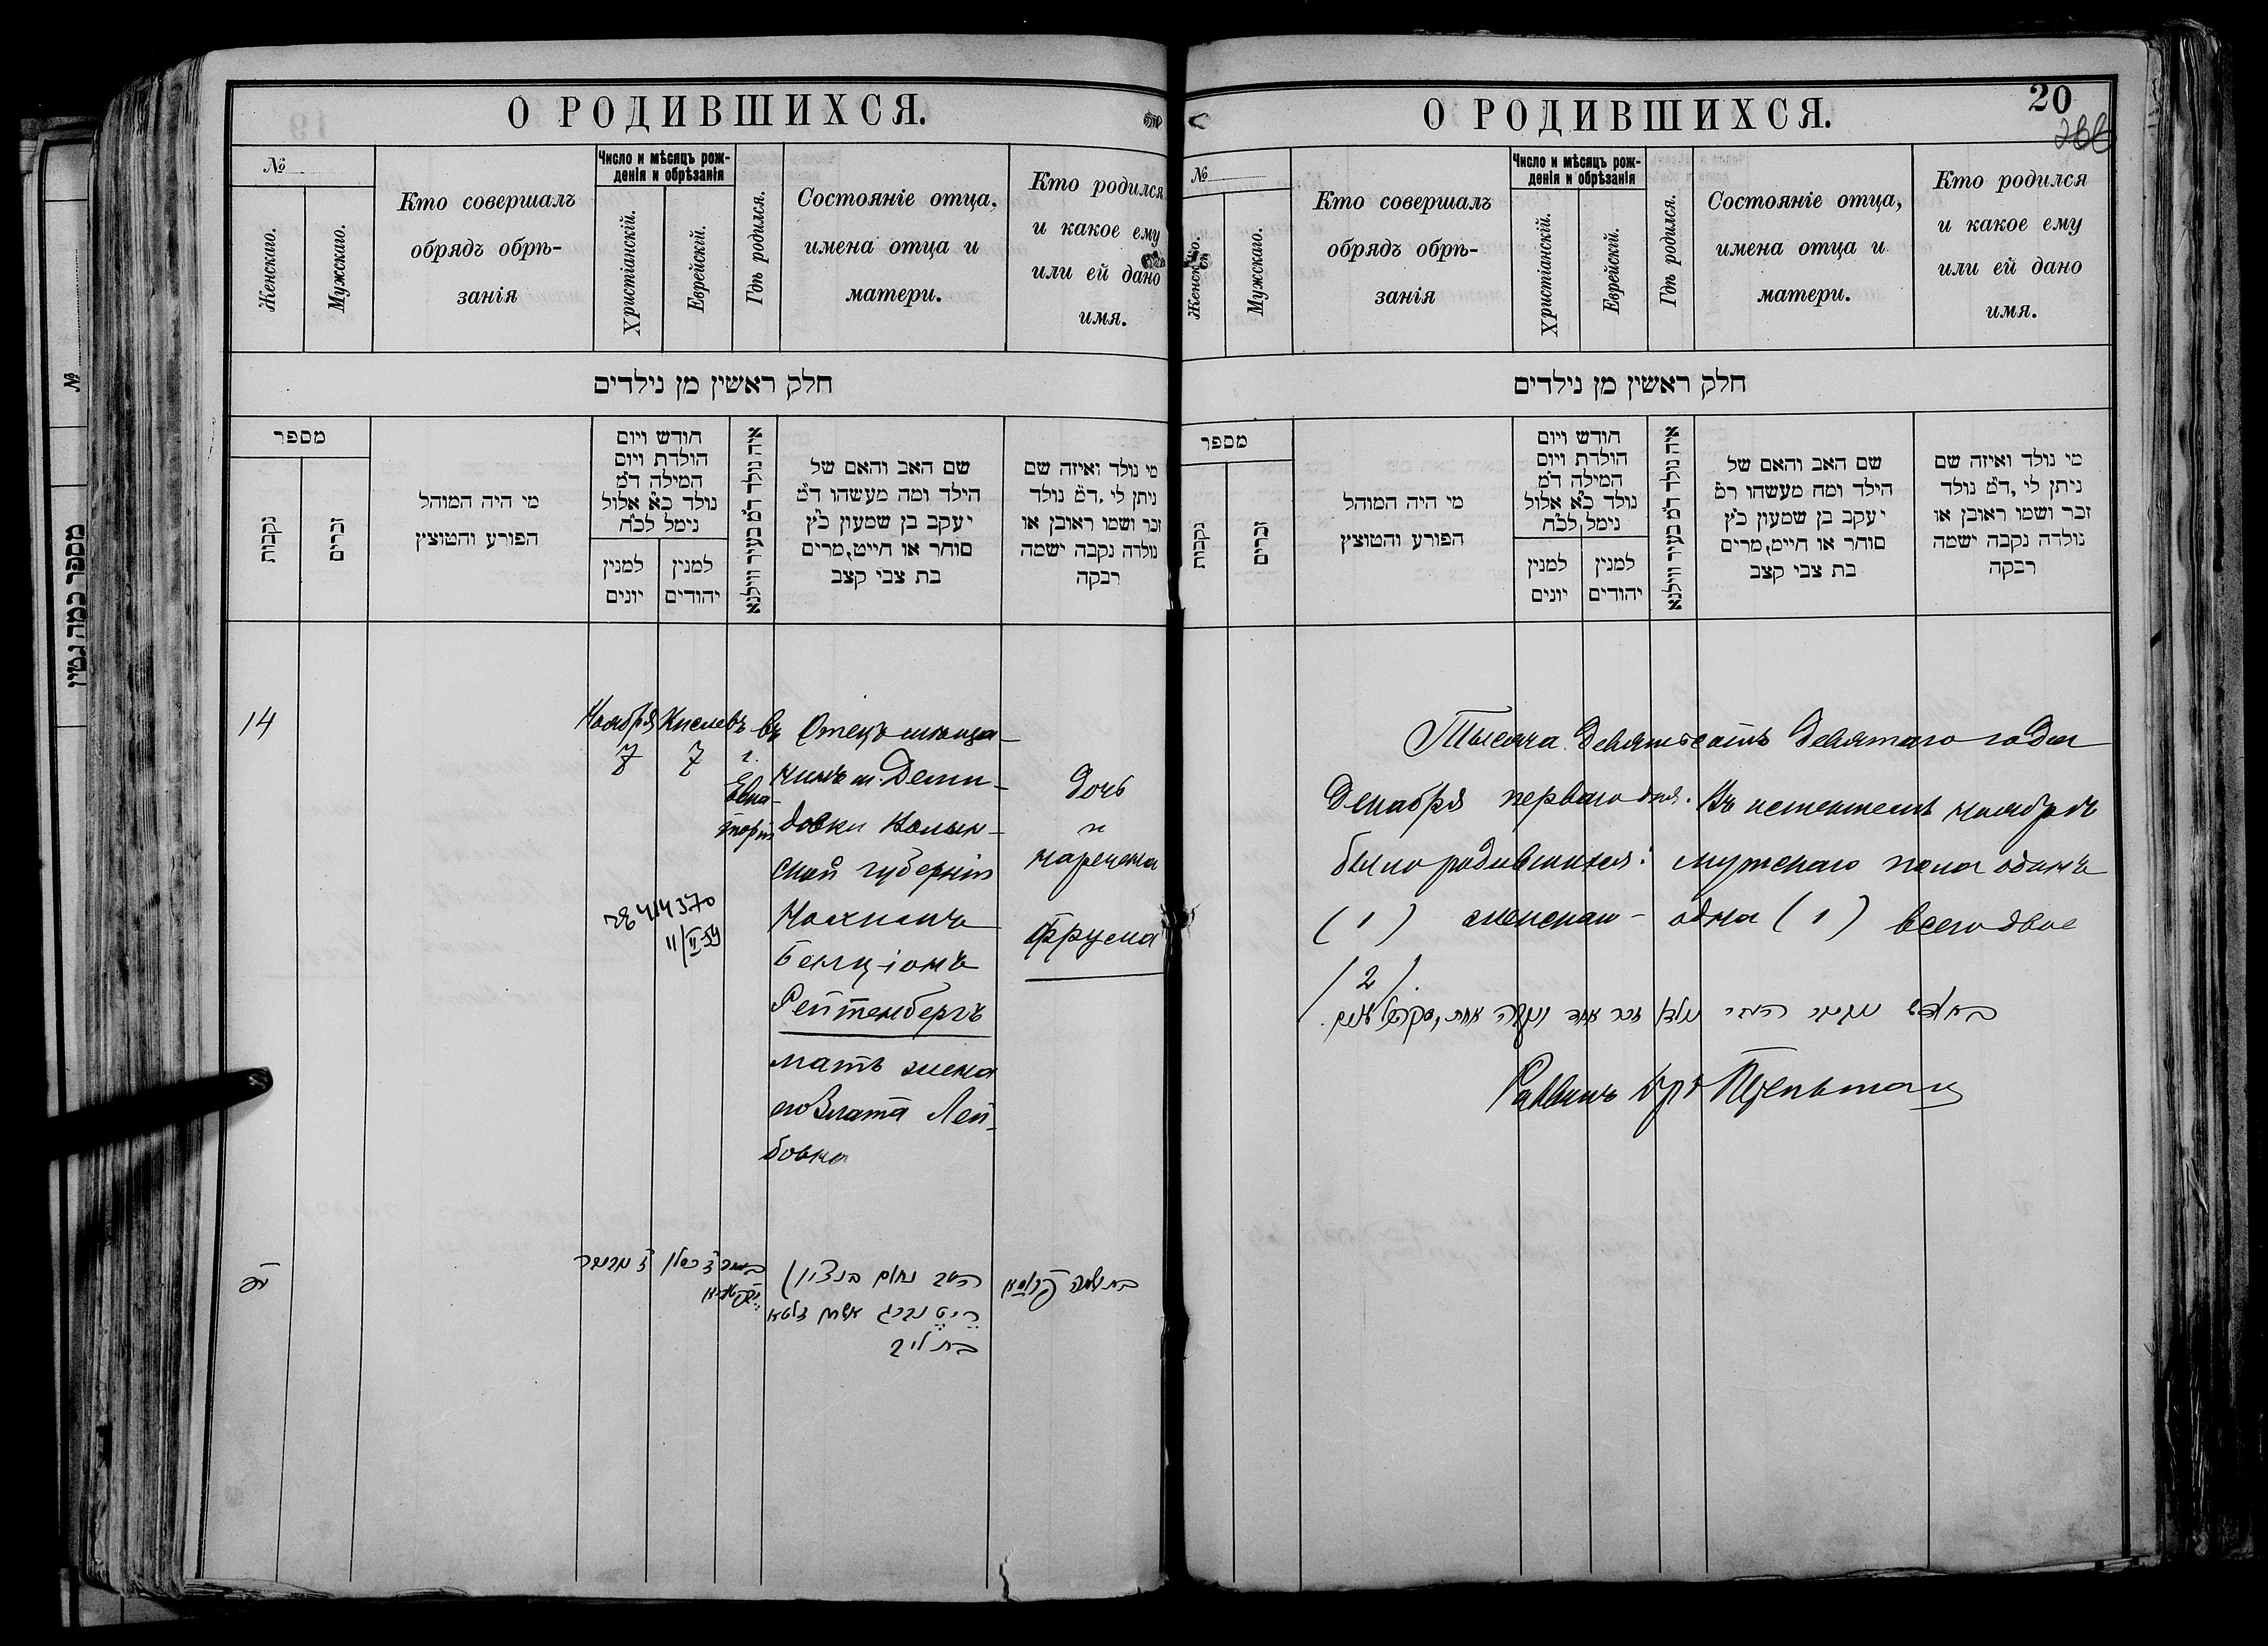 О РОДИВШИХСЯ.
№
Женскаго.
Мужскаго.
Кто совершалъ
обрядъ обрѣ-
занія
Число и мѣсяцъ рож-
денія и обрѣзанія
Христіанскій.
Еврейскій.
Гдѣ родился.
Состояніе отца,
имена отца и
матери.
Кто родился
и какое ему
или ей дано
имя.
חלק ראשין מן נילדים
מספר
נקבות
זכרים
מי היה המוהל
הפורע והמוצץ
חודש ויום
הולדת ויום
המילה ד"מ
נולד כ"א אלול
נימל לכ"ח
למנין
יונים
למנין
יהודים
איה נולד ד"מ בעיר ווילנא
שם האב והאם של
הילד ומה מעשהו ד"מ
יעקב בן שמעון כ"ץ
סוחר או חייט, מרים
בת צבי קצב
מי נולד ואיזה שם
ניתן לי, ד"מ נולד
זכר ושמו ראובן או
נולדה נקבה ישמה
רבקה
14
Ноября
7
Кислевъ
7
въ
г.
Евпа-
торіи
Отецъ мѣща-
нинъ м. Деми-
довки Волын-
ской губерніи
Нахимъ
Бенціонъ
Рейтенбергъ
мать жена
его Злата Лей-
бовна
дочь
и
наречена
Фрума
414370
11/II-59
ז נובעמבר
ז כסלו
האב נחום בנציון
רייטנברג אשתו זלטא
בת ליב
בת שמה פרומא
О РОДИВШИХСЯ.
20
№
Женскаго.
Мужскаго.
Кто совершалъ
обрядъ обрѣ-
занія
Число и мѣсяцъ рож-
денія и обрѣзанія
Христіанскій.
Еврейскій.
Гдѣ родился.
Состояніе отца,
имена отца и
матери.
Кто родился
и какое ему
или ей дано
имя.
חלק ראשין מן נילדים
מספר
נקבות
זכרים
מי היה המוהל
הפורע והמוצץ
חודש ויום
הולדת ויום
המילה ד"מ
נולד כ"א אלול
נימל לכ"ח
למנין
יונים
למנין
יהודים
איה נולד ד"מ בעיר ווילנא
שם האב והאם של
הילד ומה מעשהו ד"מ
יעקב בן שמעון כ"ץ
סוחר או חייט, מרים
בת צבי קצב
מי נולד ואיזה שם
ניתן לי, ד"מ נולד
זכר ושמו ראובן או
נולדה נקבה ישמה
רבקה
Тысяча девятьсотъ девятаго года
Декабря перваго дня. Въ истекшемъ ноябрѣ
было родившихся: мужскаго пола одинъ
(1) женскаго - одна (1) всего двое
/2/.
זכר אחד ונקבה אחת
Раввинъ